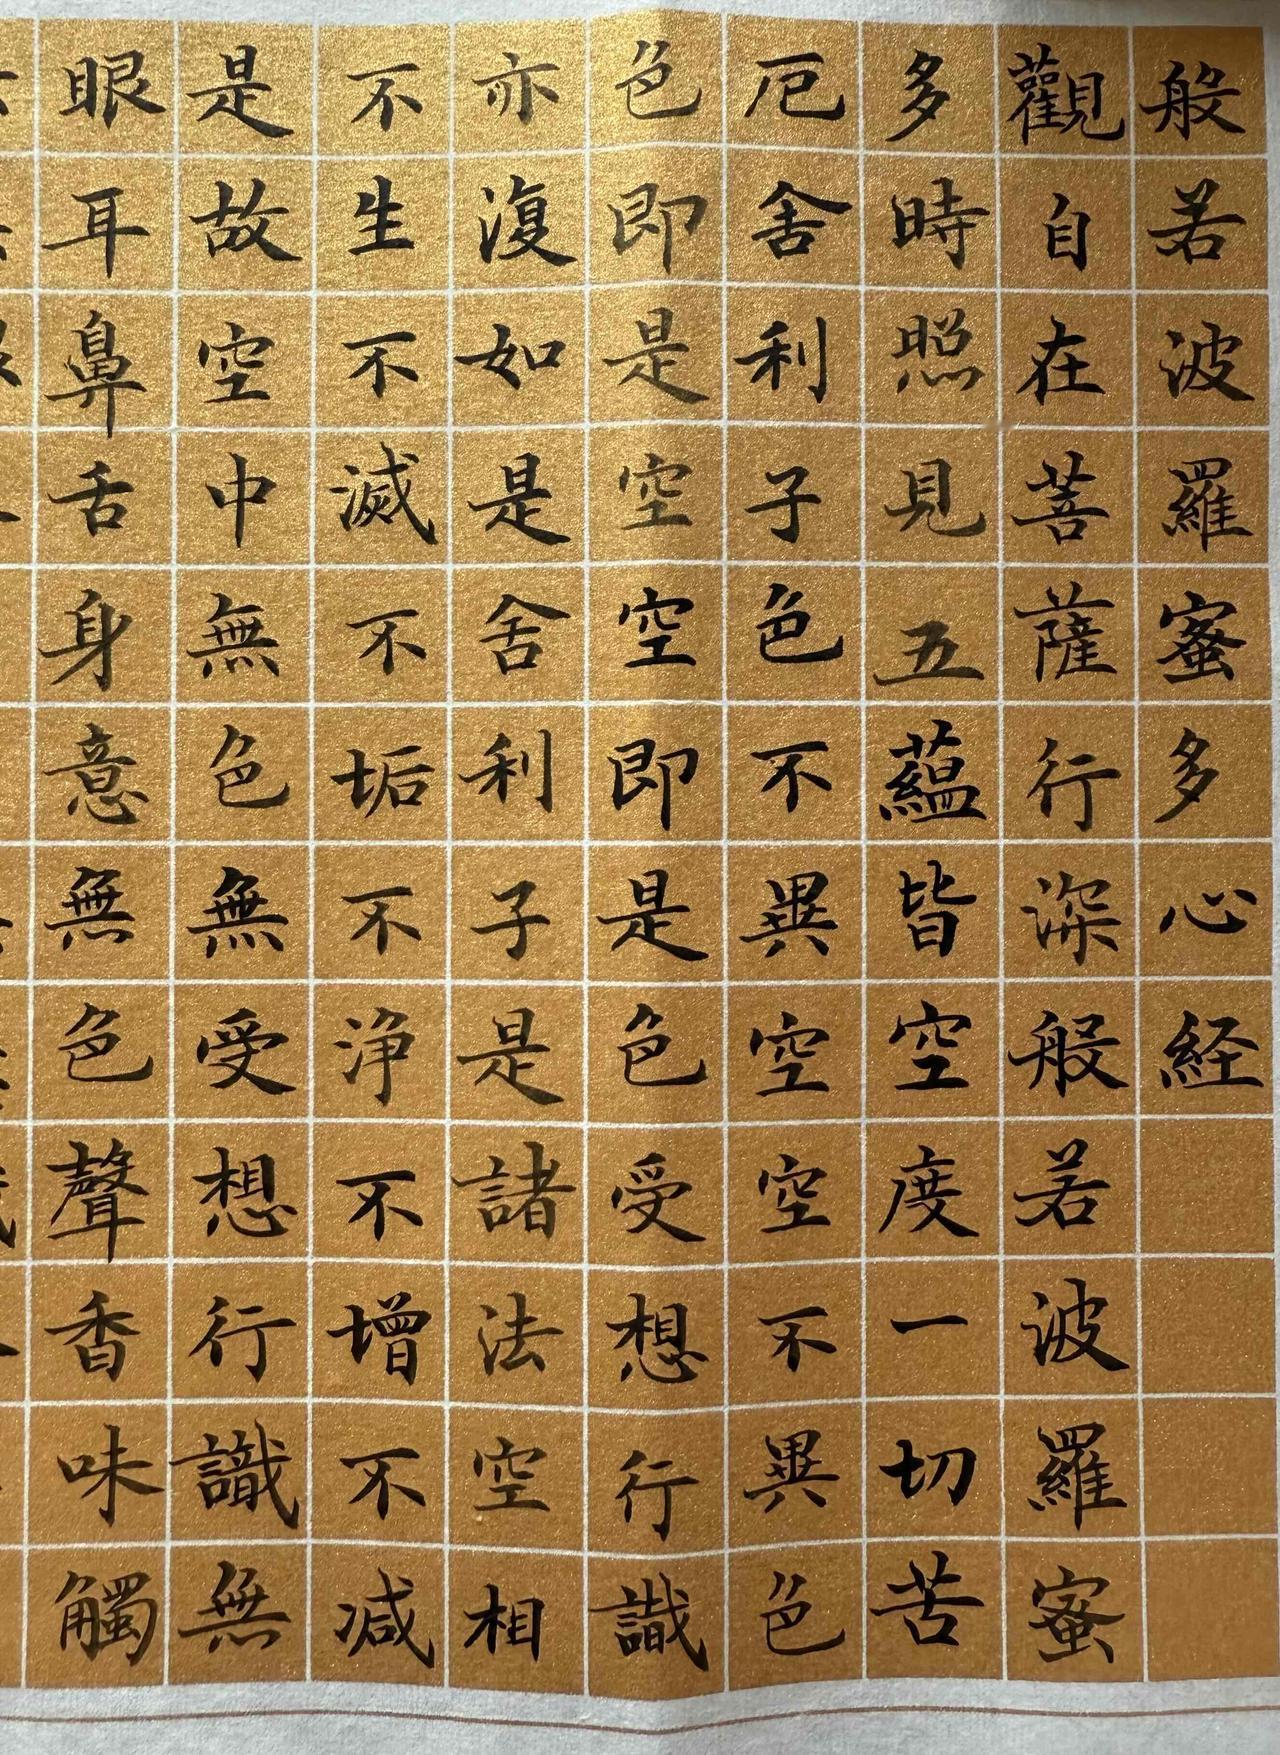 般若波羅蜜多心経
觀自在菩薩行深般若波羅蜜
多時照見五蘊皆空度一切苦
厄舍利子色不異空空不異色
色即是空空即是色受想行識
亦復如是舍利子是諸法空相
不生不滅不垢不淨不增不減
是故空中無色無受想行識無
眼耳鼻舌身意無色聲香味觸